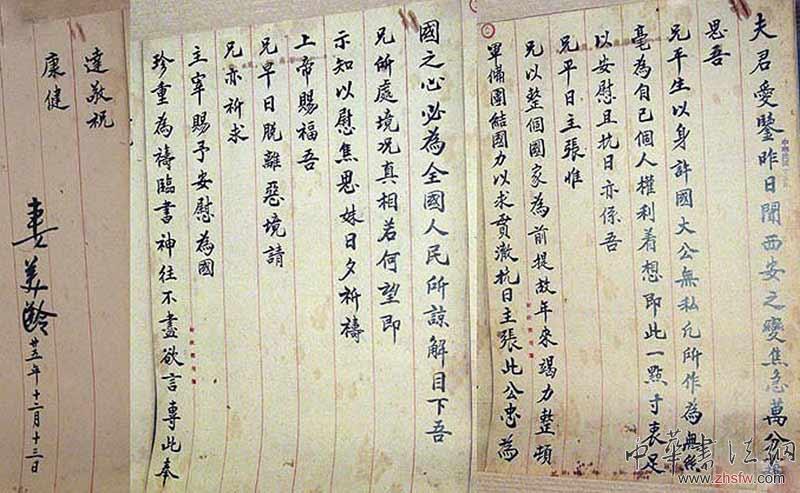 夫君愛鑒昨日聞西安之變焦急萬分竊
思吾
兄平生以身許國大公無私凡所作為無絲
毫為自己個人權利着想即此一點寸衷足
以安慰且抗日亦係吾
兄平日主張惟
兄以整個國家為前提故年來竭力整頓
軍備團結國力以求貫澈抗日主張此公忠為
國之心必為全國人民所諒解目下吾
兄所處境況真相若何望即
示知以慰焦思妹日夕祈禱
上帝賜福吾
兄早日脫離惡境請
兄亦祈求
主宰賜予安慰為國
珍重為禱臨書神往不盡欲言專此奉
達敬祝
康健
妻美齡廿五年十二月十三日
中華書法網
www.zhsfw.com